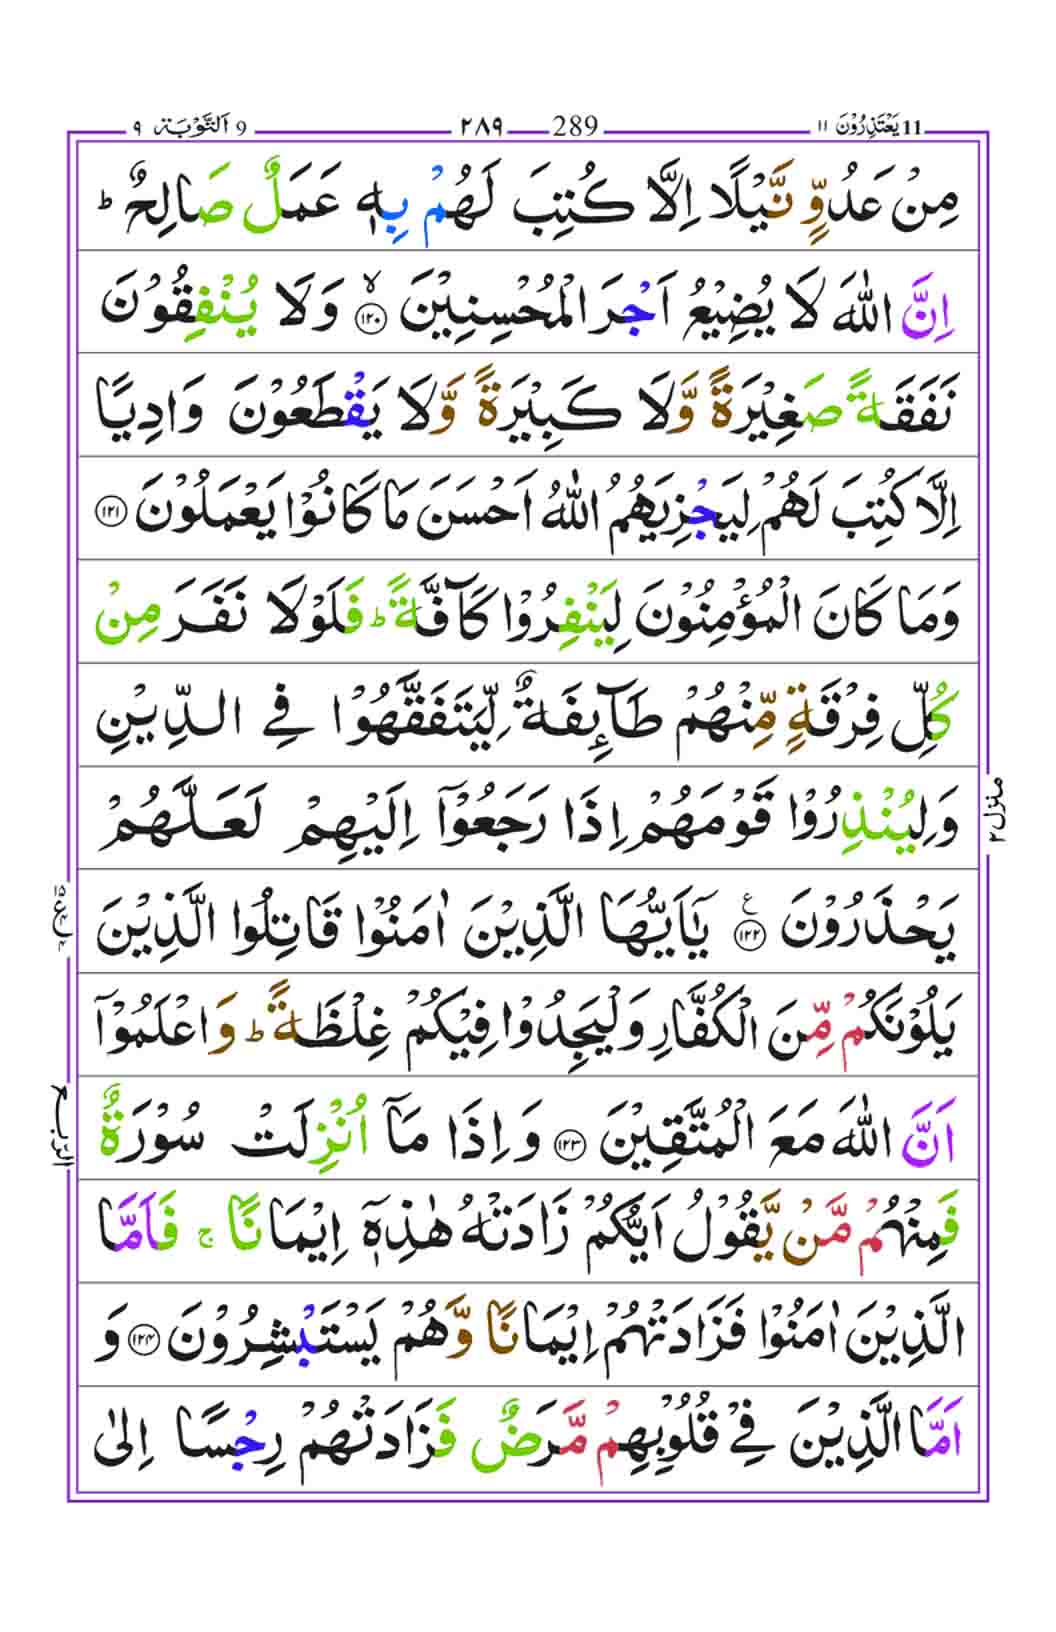 11 يَعْتَذِرُوْنَ ١١ 289 ٢٨٩ 9 اَلتَّوْبَة ٩
مِنْ عَدُوٍّ نَّيْلًا اِلَّا كُتِبَ لَهُمْ بِهٖ عَمَلٌ صَالِحٌ ؕ
اِنَّ اللّٰهَ لَا يُضِيْعُ اَجْرَ الْمُحْسِنِيْنَ ۙ‏﴿۱۲۰﴾ وَلَا يُنْفِقُوْنَ
نَفَقَةً صَغِيْرَةً وَّلَا كَبِيْرَةً وَّلَا يَقْطَعُوْنَ وَادِيًا
اِلَّا كُتِبَ لَهُمْ لِيَجْزِيَهُمُ اللّٰهُ اَحْسَنَ مَا كَانُوْا يَعْمَلُوْنَ ﴿۱۲۱﴾
وَمَا كَانَ الْمُؤْمِنُوْنَ لِيَنْفِرُوْا كَآفَّةً ؕ فَلَوْلَا نَفَرَ مِنْ
كُلِّ فِرْقَةٍ مِّنْهُمْ طَآئِفَةٌ لِّيَتَفَقَّهُوْا فِى الدِّيْنِ
وَلِيُنْذِرُوْا قَوْمَهُمْ اِذَا رَجَعُوْٓا اِلَيْهِمْ لَعَلَّهُمْ
يَحْذَرُوْنَ ﴿۱۲۲﴾ ع يٰۤاَيُّهَا الَّذِيْنَ اٰمَنُوْا قَاتِلُوا الَّذِيْنَ
يَلُوْنَكُمْ مِّنَ الْكُفَّارِ وَلْيَجِدُوْا فِيْكُمْ غِلْظَةً ؕ وَاعْلَمُوْٓا
اَنَّ اللّٰهَ مَعَ الْمُتَّقِيْنَ ﴿۱۲۳﴾ وَاِذَا مَآ اُنْزِلَتْ سُوْرَةٌ
فَمِنْهُمْ مَّنْ يَّقُوْلُ اَيُّكُمْ زَادَتْهُ هٰذِهٖٓ اِيْمَانًا ۚ فَاَمَّا
الَّذِيْنَ اٰمَنُوْا فَزَادَتْهُمْ اِيْمَانًا وَّهُمْ يَسْتَبْشِرُوْنَ ﴿۱۲۴﴾ وَ
اَمَّا الَّذِيْنَ فِيْ قُلُوْبِهِمْ مَّرَضٌ فَزَادَتْهُمْ رِجْسًا اِلٰى
منزل ٢
الرّبع